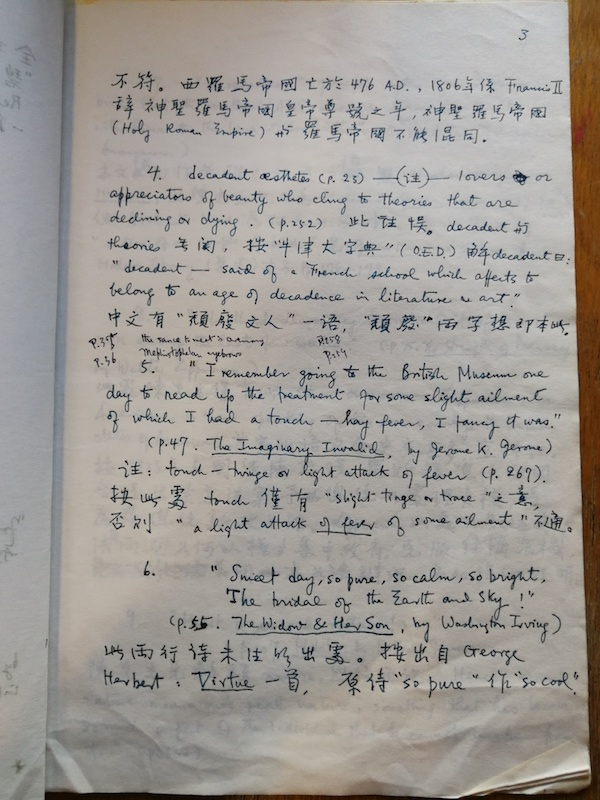 3
不符。西羅馬帝國亡於476 A.D., 1806年係 Francis II
辭神聖羅馬帝國皇帝尊號之年, 神聖羅馬帝國
(Holy Roman Empire) 与羅馬帝國不能混同。
4. decadent æsthetes (p. 23) —(注)— lovers or
appreciators of beauty who cling to theories that are
declining or dying. (p.252) 此註悞。decadent 与
theories 無関, 按"牛津大字典" (O.E.D.) 解 decadent 曰:
"decadent — said of a French school which affects to
belong to an age of decadence in literature & art."
中文有"頹廢文人"一語, "頹廢"兩字想即本此。
p.35 the sance to meat is 258
p.36 Mephistophelan eyebrows p.259
5. "I remember going to the British Museum one
day to read up the treatment for some slight ailment
of which I had a touch — hay fever, I fancy it was."
(p.47. The Imaginary Invalid, by Jerome K. Jerome)
注: touch — twinge or light attack of fever (p. 267).
按此處 touch 僅有 "slight tinge or trace" 之意,
否則 "a light attack of fever of some ailment" 不通。
6. "Sweet day, so pure, so calm, so bright,
The bridal of the Earth and Sky!"
(p.55. The Widow & Her Son, by Washington Irving)
此兩行詩未注明出處。按出自 George
Herbert: Virtue 一首, 原詩 "so pure" 作 "so cool".